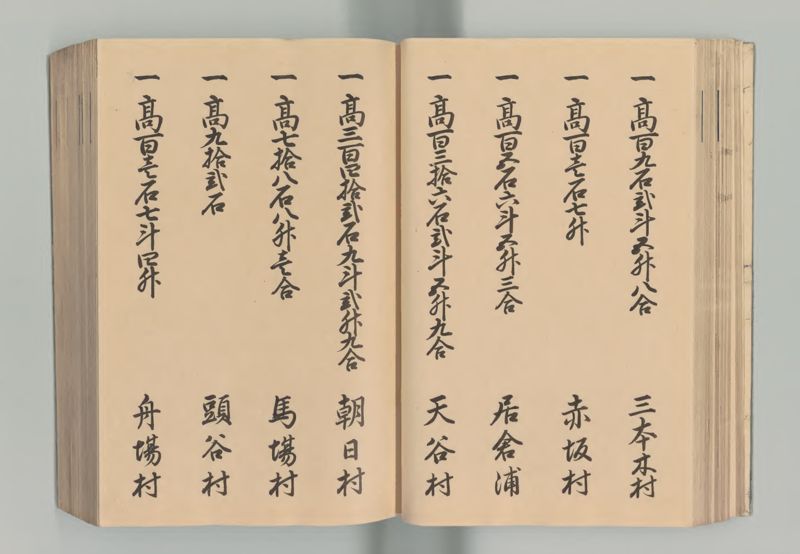 一 高百九石弐斗五升八合 三本木村
一 高百壱石七升 赤坂村
一 高百五石六斗五升三合 居倉浦
一 高百三拾六石弐斗五升九合 天谷村
一 高三百四拾弐石九斗弐升九合 朝日村
一 高七拾八石八升壱合 馬場村
一 高九拾弐石 頭谷村
一 高百壱石七斗四升 舟場村